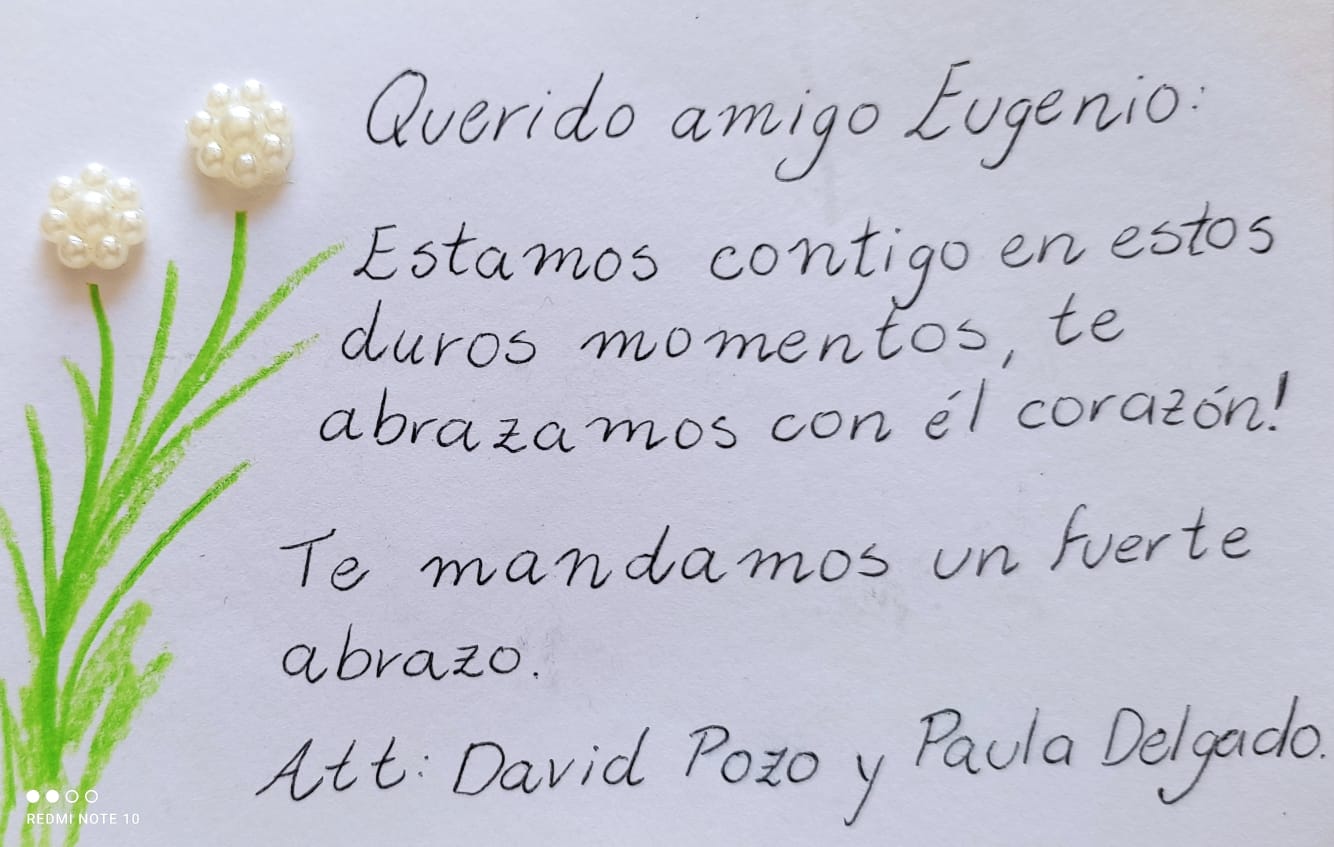 Querido amigo Eugenio:
Estamos contigo en estos
duros momentos, te
abrazamos con él corazón!
Te mandamos un fuerte
abrazo.
Att: David Pozo y Paula Delgado.
REDMI NOTE 10